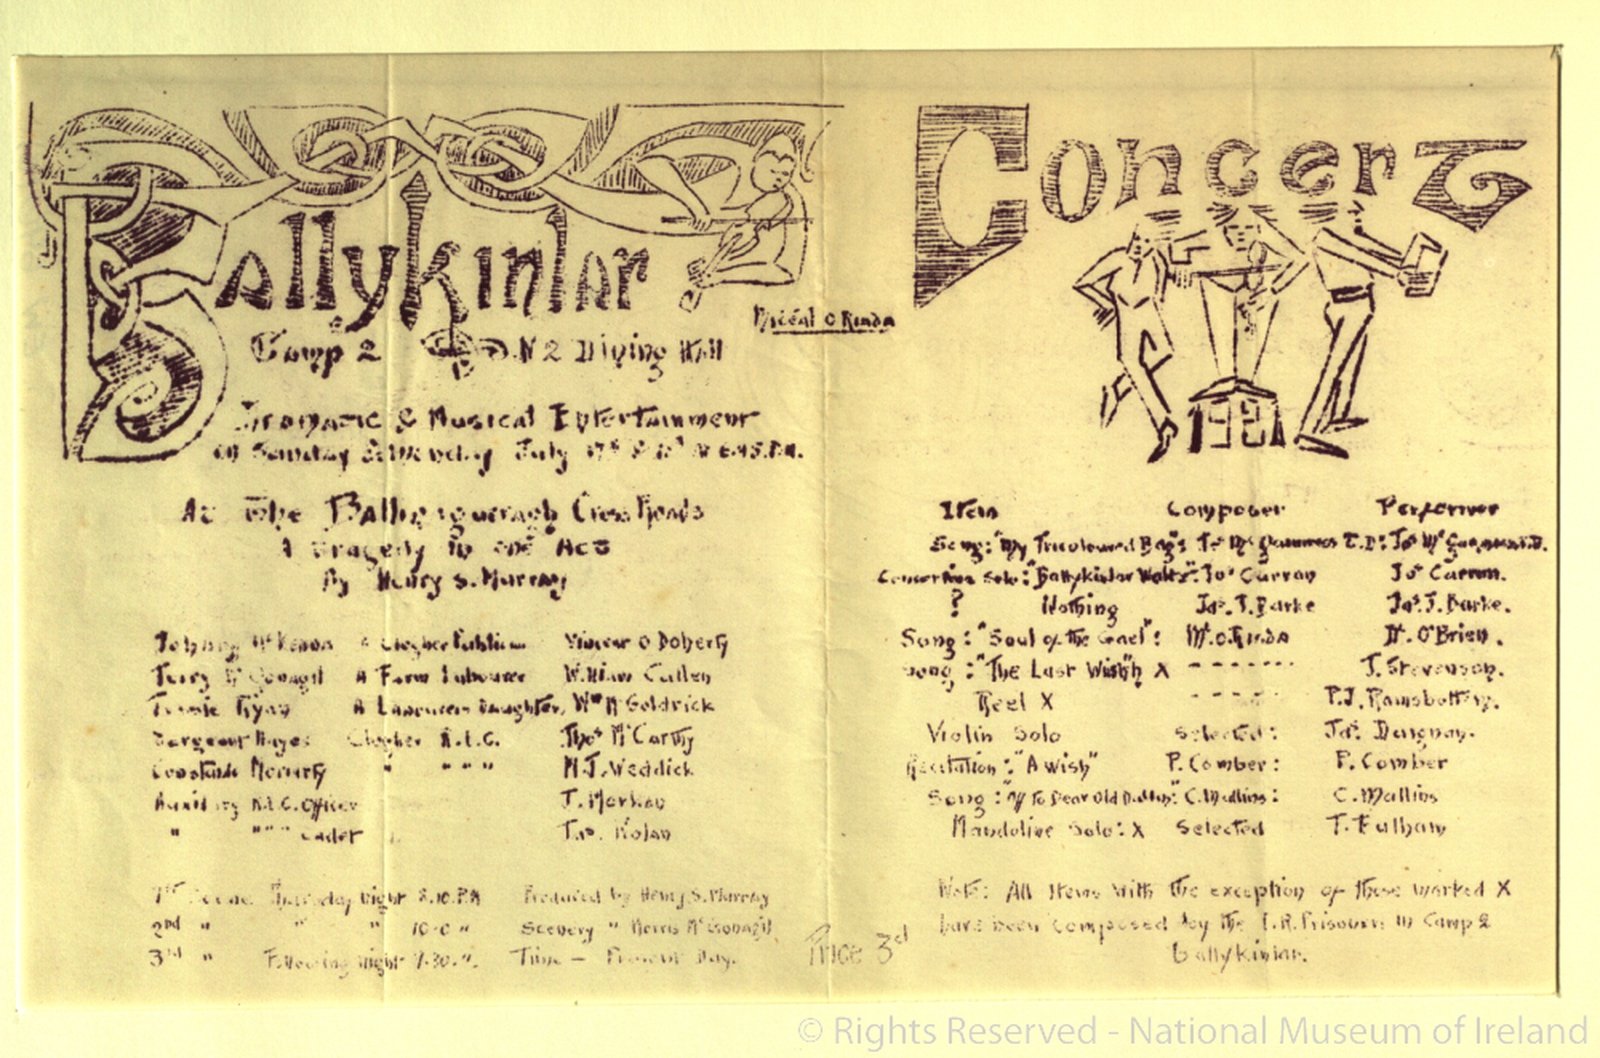 Ballykinlar
Camp 2 No 2 Dining Hall
Micéal O Rinda
Dramatic & Musical Entertainment
on Sunday & Monday July 17th & 18th at 6.45.P.M.
At The Cross Roads
A Tragedy in one Act
By Henry S. Murray
Johnny McKenna A Clogher Publican Vincent O Doherty
Terry McGonagil A Farm Labourer William Cullen
Ryan A Daughter, Wm McGoldrick
Sergeant Hayes Clogher R.I.C. Thos McCarthy
Constable Moriarty " " " " M.J. Weddick
Auxiliary R.I.C. Officer J.
" " " " Cadet Jas. Nolan
1st Scene Thursday Night 8.10.P.M Produced by Henry S. Murray
2nd " " " 10-0 " Scenery " Morris McGonagil
3rd " Following Night 7.30. ". Time — Present Day.
Price 3d
Concert
1921
Item Composer Performer
Song: "My Tricoloured Jos McGuinness T.D: Jos McGuinness T.D.
Concertina Solo: "Ballykinlar Waltz": Jos Curran Jos Curran.
? Nothing Jas. J. Barke Jas. J. Barke.
Song: "Soul of the Gael": Ml. O. Rinda O'Brien.
Song: "The Last Wish" X - - - - - - - J. Stevenson.
Reel X - - - - - P.J. Ramsbottom.
Violin Solo Selected: Jas. Dungnan.
Recitation: "A Wish" P. Comber: P. Comber
Song: "Off To Dear Old Dublin": C. Mullins: C. Mullins
Mandoline Solo: X Selected T. Fulham
Note: All Items with the exception of these marked X
have been composed by the I.R. Prisoners in Camp 2
Ballykinlar.
© Rights Reserved - National Museum of Ireland